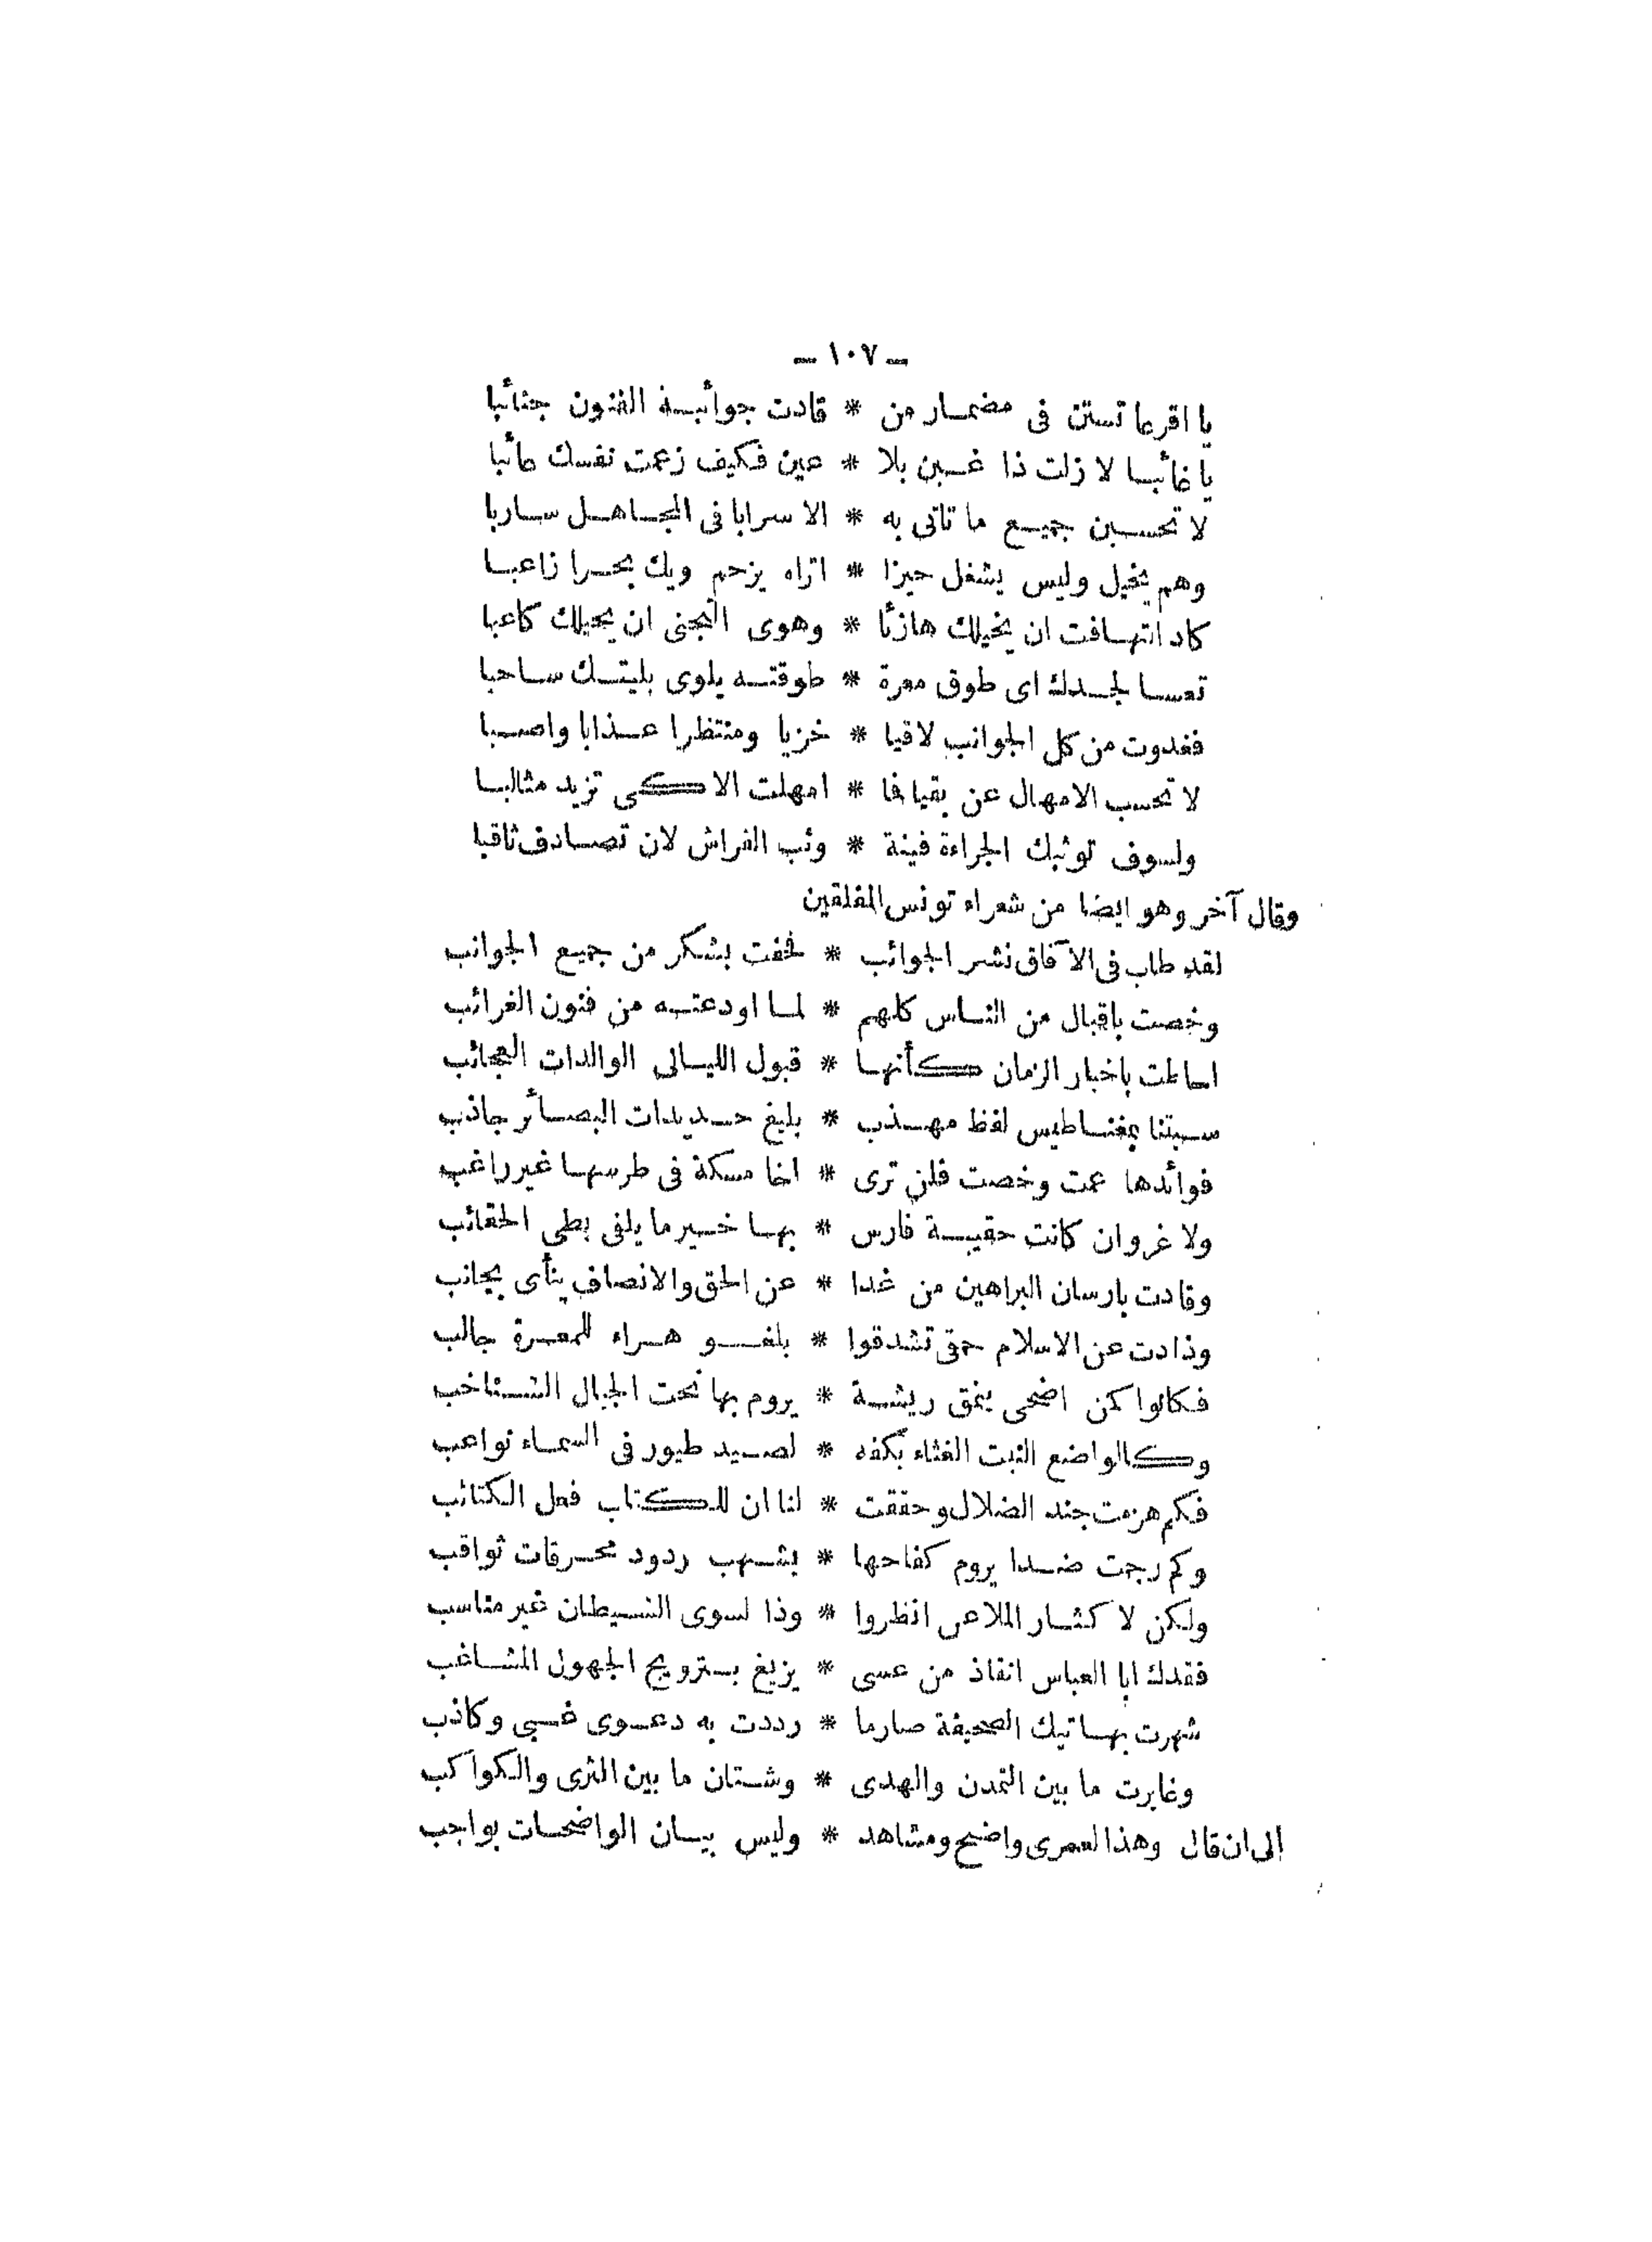 — ١٠٧ —
يا اقرعا تستن فى مضمار من * قادت جوائبه الفنون جنائبا
يا غائبا لا زلت ذا غبن بلا * عين فكيف زعمت نفسك عائبا
لا تحسبن جميع ما تاتى به * الا سرابا فى المجاهل ساربا
وهم يخيل وليس يشغل حيزا * اتراه يزحم ويك بحرا زاعبا
كاد التهافت ان يخيلك هازئا * وهوى التجنى ان يحيلك كاعبا
تعسا لجدك اى طوق معرة * طوقته يلوى بليتك ساحبا
فغدوت من كل الجوانب لاقيا * خزيا ومنتظرا عذابا واصبا
لا تحسب الامهال عن بقيا فا * امهلت الا كى تزيد مثالبا
ولسوف توثبك الجراءة فينة * وثب الفراش لان تصادف ثاقبا
وقال آخر وهو ايضا من شعراء تونس المفلقين
لقد طاب فى الآفاق نشر الجوائب * فحفت بشكر من جميع الجوانب
وخصت باقبال من الناس كلهم * لما اودعته من فنون الغرائب
احاطت باخبار الزمان كأنها * قبول الليالى الوالدات العجائب
سبتنا بمغناطيس لفظ مهذب * بليغ حديدات البصائر جاذب
فوائدها عمت وخصت فلن ترى * اخا مسكة فى طرسها غير راغب
ولا غروان كانت حقيبة فارس * بها خير ما يلفى بطى الحقائب
وقادت بارسان البراهين من غدا * عن الحق والانصاف ينأى بجانب
وذادت عن الاسلام حمقى تشدقوا * بلغو هراء للمعرة جالب
فكانوا كمن اضحى ينمق ريشة * يروم بها نحت الجبال الشناخب
وكالواضع النبت الغثاء بكفه * لصيد طيور فى السماء نواعب
فكم هزمت جند الضلال وحققت * لنا ان للكتاب فعل الكتائب
وكم رجمت ضدا يروم كفاحها * بشهب ردود محرقات ثواقب
ولكن لا كثار الملاعى انظروا * وذا لسوى الشيطان غير مناسب
فقدك ابا العباس انقاذ من عسى * يزيغ بترويج الجهول المشاغب
شهرت بهاتيك الصحيفة صارما * رددت به دعوى غبى وكاذب
وغايرت ما بين التمدن والهدى * وشتان ما بين الثرى والكواكب
الى ان قال وهذا لعمرى واضح ومشاهد * وليس بيان الواضحات بواجب